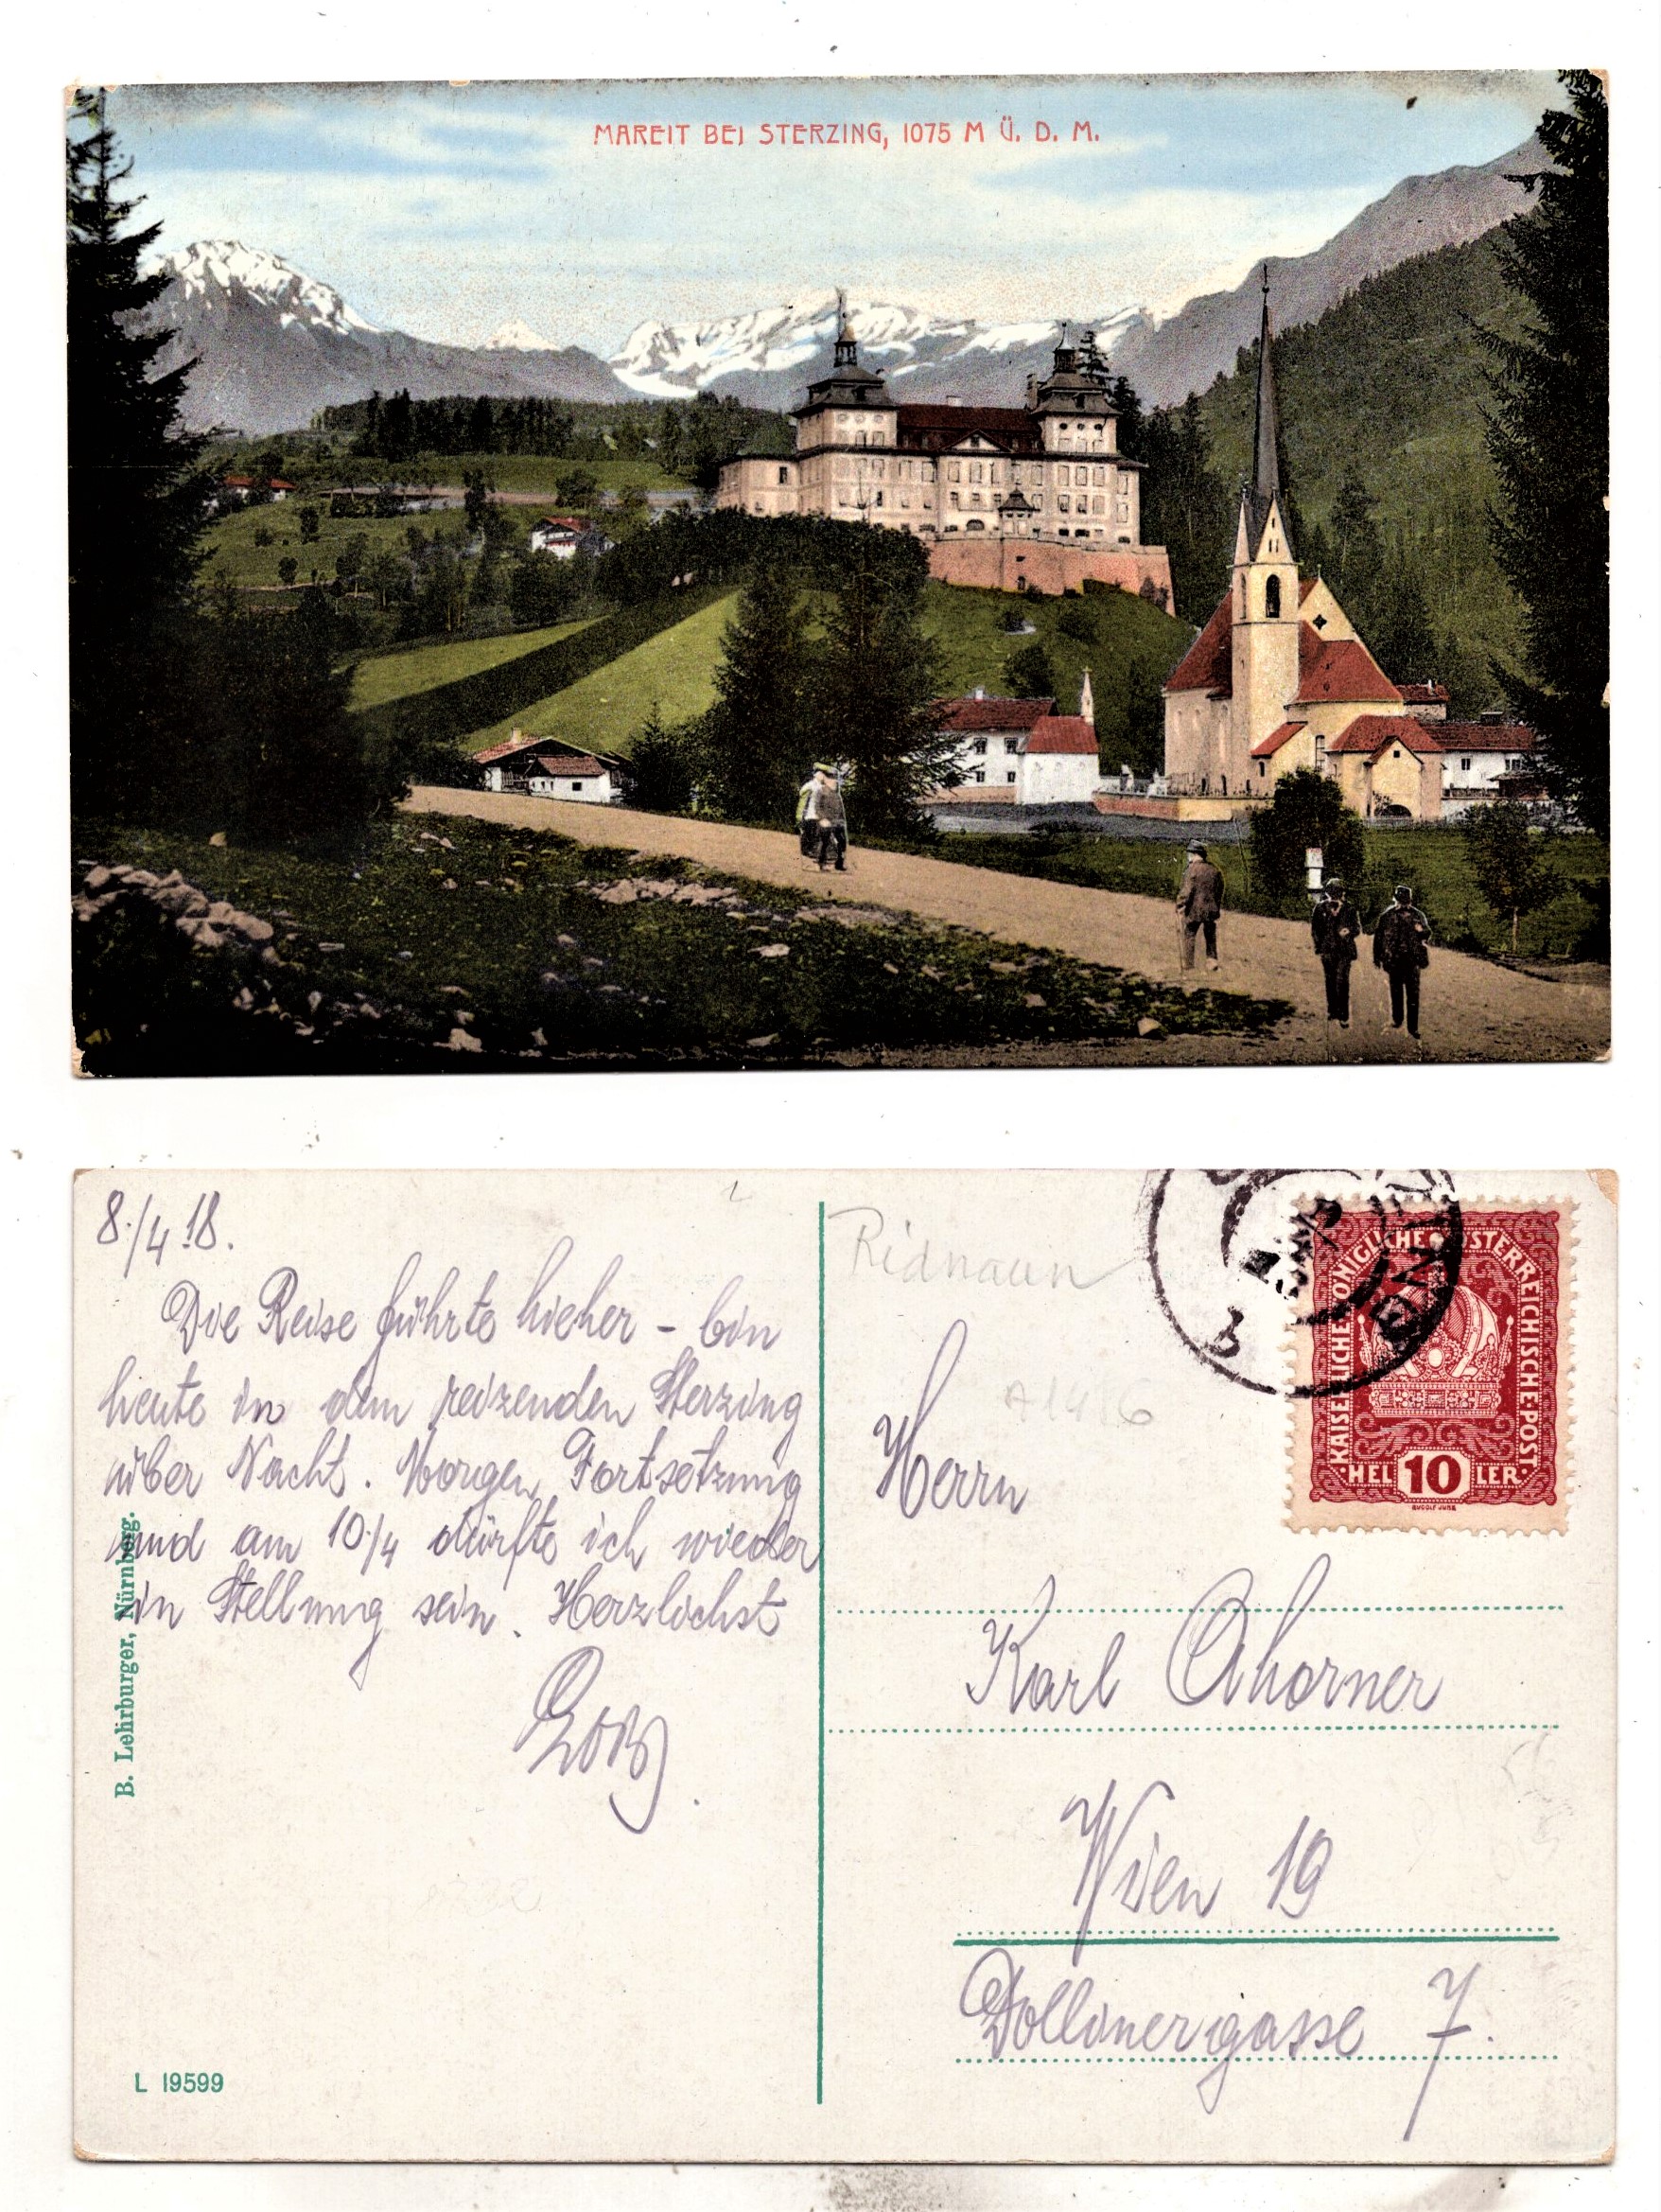 MAREIT BEI STERZING, 1075 M Ü. D. M.
8./4.18.
Die Reise führte hieher – bin
heute in dem reizenden Sterzing
über Nacht. Morgen Fortsetzung
und am 10./4 dürfte ich wieder
in Stellung sein. Herzlichst
B. Lehrburger, Nürnberg.
L 19599
Ridnaun
KAISERLICHE KÖNIGLICHE ÖSTERREICHISCHE POST
HEL 10 LER
RUDOLF JUNK
Herrn
Karl Ahorner
Wien 19
Dollinergasse 7.